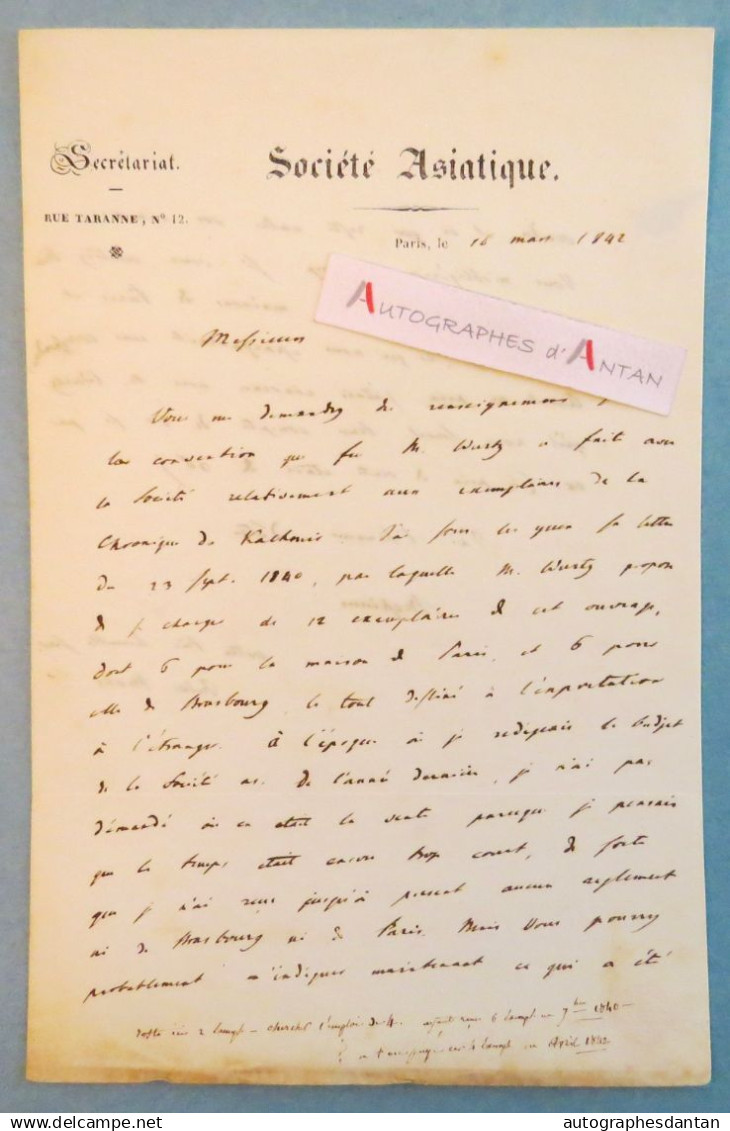 Secrétariat.
Société Asiatique.
RUE TARANNE, Nº 12.
Paris, le 16 mars 1842
AUTOGRAPHES d'ANTAN
Messieurs
Vous me demandez des renseignemens
la convention que feu M. Wurtz a fait avec
la Société relativement aux exemplaires de la
Chronique de Kachmir. J'ai sous les yeux sa lettre
du 23 Sept. 1840, par laquelle M. Wurtz propose
de se charger de 12 exemplaires de cet ouvrage,
dont 6 pour la maison de Paris, et 6 pour
celle de Strasbourg, le tout destiné à l'exportation
à l'étranger. à l'époque où je redigeais le budjet
de la Société as. de l'année dernière, je n'ai pas
demandé où en était la vente parceque je pensais
que le temps était encore trop court, de sorte
que je n'ai reçu jusqu'à présent aucun reglement
ni de Strasbourg ni de Paris. Mais Vous pourrez
probablement m'indiquer maintenant ce qui a été
reste 2 - chercher l'emploi de 4. ayant reçu 6 en 7bre 1840 -
en April 1842
autographesdantan